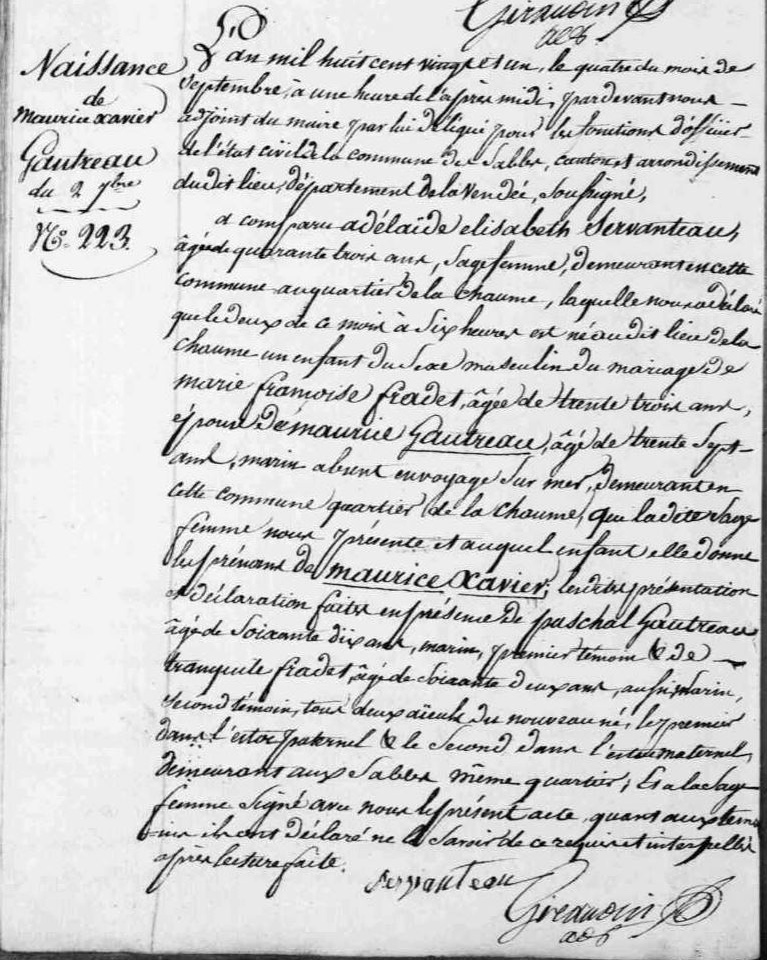 Giraudin
adj.
Naissance
de
maurice xavier
Gautreau
du 2 7bre
No. 223.
L'an mil huit cent vingt et un, le quatre du mois de
Septembre, à une heure de l'après midi, pardevant nous
adjoint du maire par lui delégué pour les fonctions d'officier
de l'état civil de la commune des Sables, canton et arrondissement
dudit lieu, département de la vendée, soussigné,
a comparu adélaïde elisabeth Servanteau,
âgée de quarante trois ans, Sage femme, demeurant en cette
commune au quartier de la chaume, laquelle nous a déclaré
que le deux de ce mois à six heures est né audit lieu de la
chaume un enfant du Sexe masculin du mariage de
marie françoise fradet, âgée de trente trois ans,
épouse de maurice Gautreau, âgé de trente Sept
ans, marin absent en voyage Sur mer, demeurant en
cette commune quartier de la chaume, que la dite Sage
femme nous présente et auquel enfant elle donne
les prénoms de maurice xavier; lesdites présentation
et déclaration faites en présence de paschal Gautreau
âgé de Soixante dix ans, marin, premier témoin & de
tranquile fradet, âgé de Soixante deux ans, aussi marin,
Second témoin, tous deux aïeuls du nouveau né, le premier
dans l'estoc paternel & le Second dans l'estoc maternel,
demeurans aux Sables même quartier; Et a la Sage
femme Signé avec nous le présent acte, quant aux temo
ins ils ont déclaré ne le Savoir de ce requis et interpellés
après lecture faite.
Servanteau
Giraudin
adj.